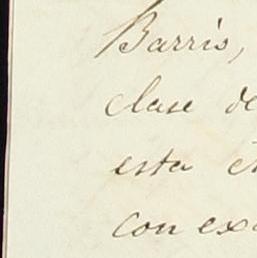 Barris,
clase de
esta
con